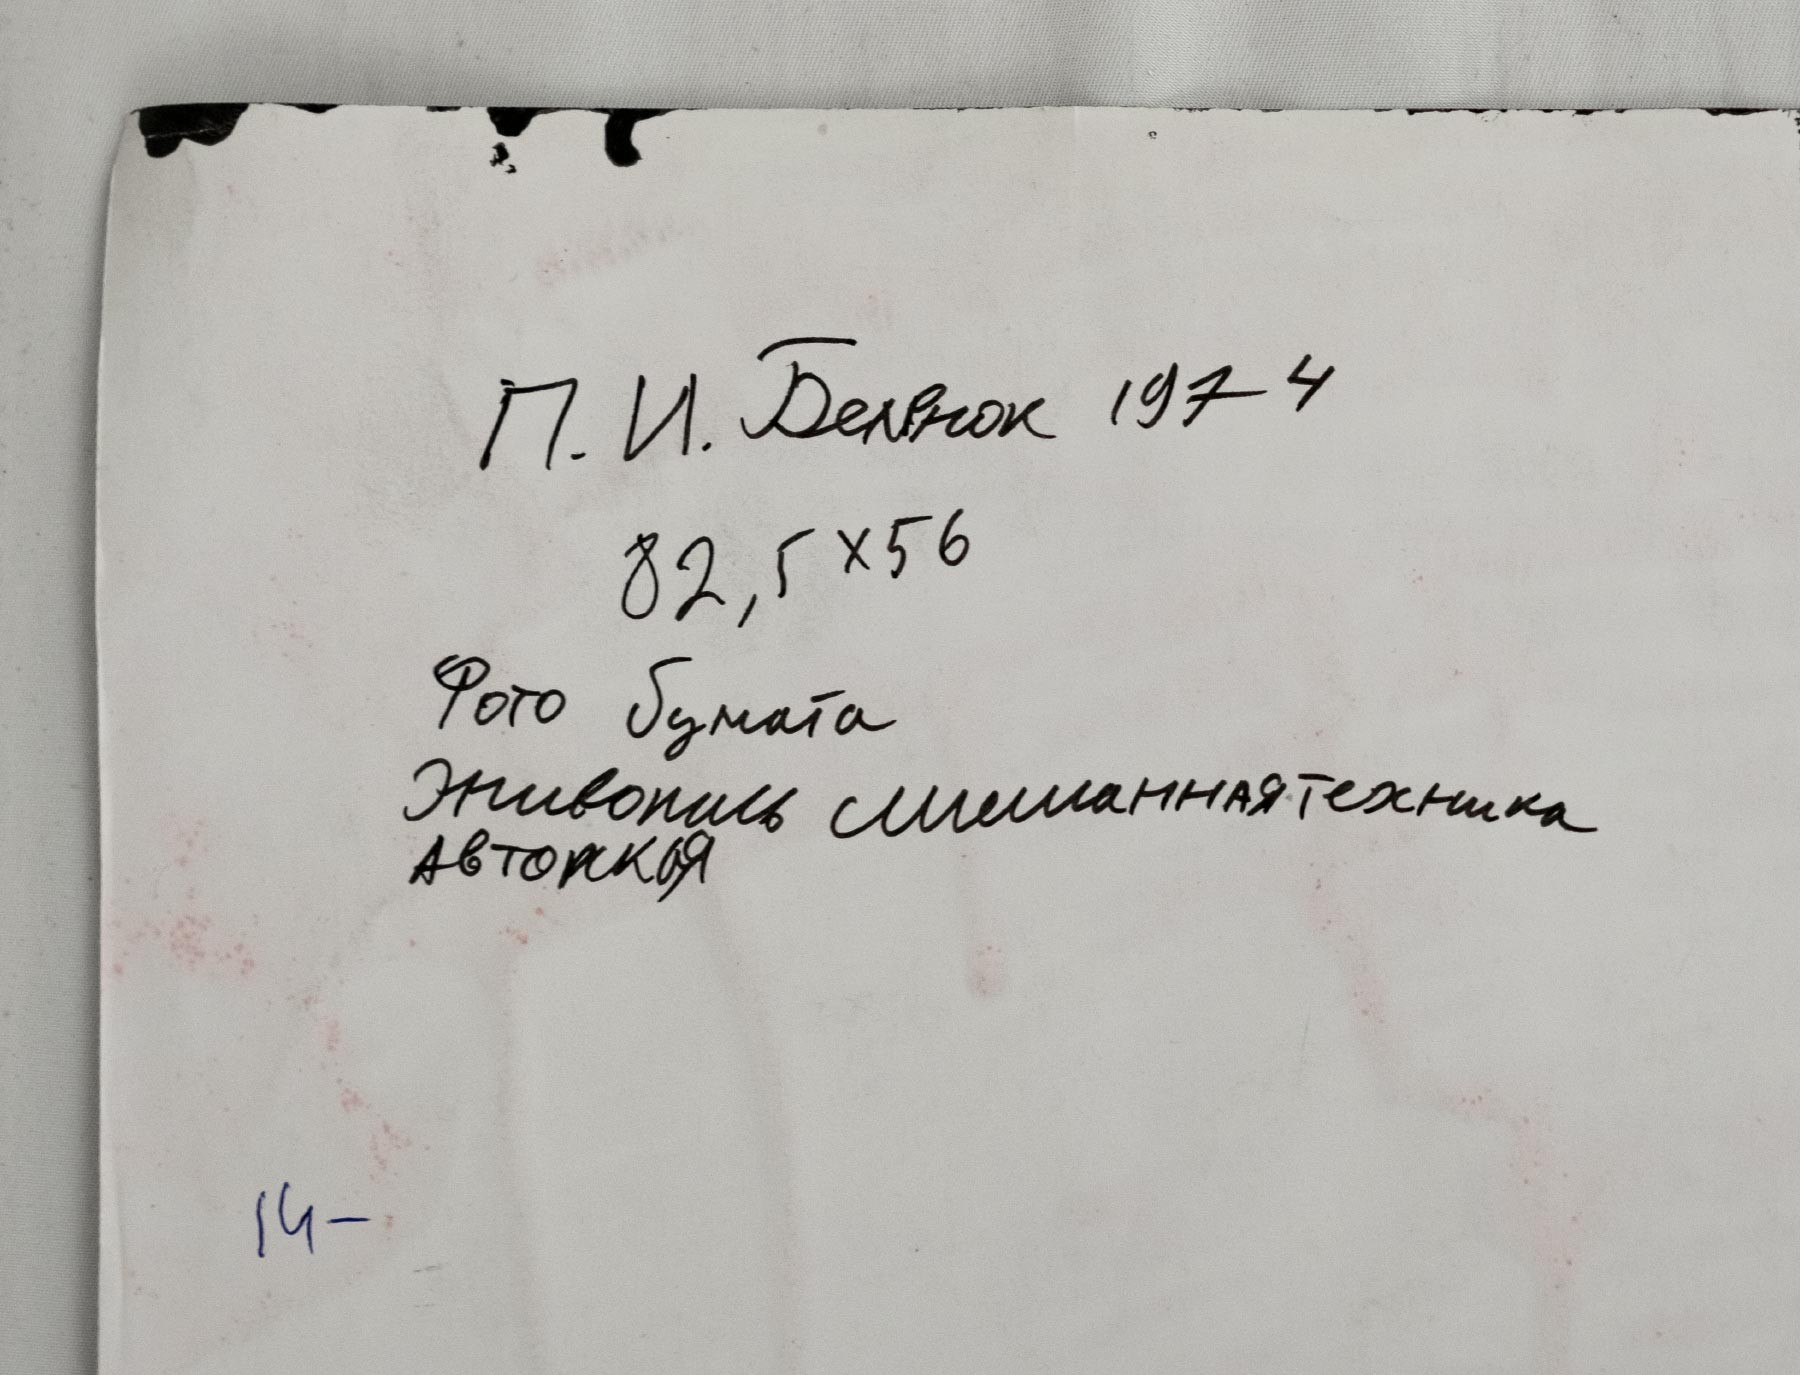 П. И. Беленок 1974
82,5 x 56
Фото бумага
Живопись смешанная техника
Авторская
14-